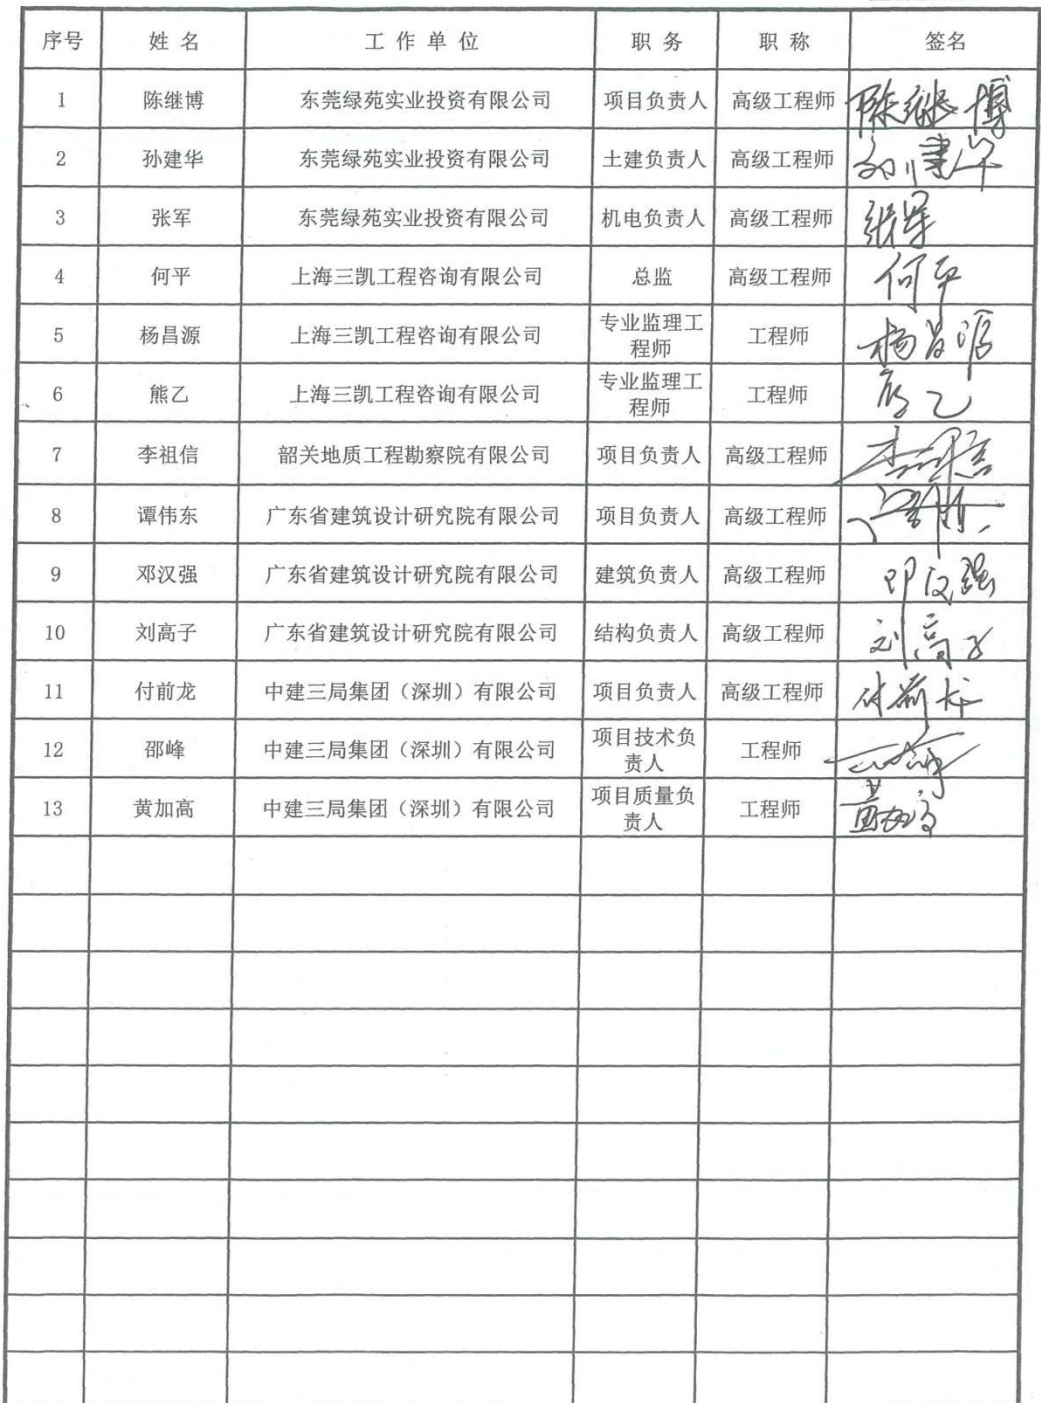 序号 姓 名 工 作 单 位 职 务 职 称 签名
1 陈继博 东莞绿苑实业投资有限公司 项目负责人 高级工程师 陈继博
2 孙建华 东莞绿苑实业投资有限公司 土建负责人 高级工程师 孙建华
3 张军 东莞绿苑实业投资有限公司 机电负责人 高级工程师 张军
4 何平 上海三凯工程咨询有限公司 总监 高级工程师 何平
5 杨昌源 上海三凯工程咨询有限公司 专业监理工程师 工程师 杨昌源
6 熊乙 上海三凯工程咨询有限公司 专业监理工程师 工程师 熊乙
7 李祖信 韶关地质工程勘察院有限公司 项目负责人 高级工程师 李祖信
8 谭伟东 广东省建筑设计研究院有限公司 项目负责人 高级工程师
9 邓汉强 广东省建筑设计研究院有限公司 建筑负责人 高级工程师 邓汉强
10 刘高子 广东省建筑设计研究院有限公司 结构负责人 高级工程师 刘高子
11 付前龙 中建三局集团（深圳）有限公司 项目负责人 高级工程师 付前龙
12 邵峰 中建三局集团（深圳）有限公司 项目技术负责人 工程师
13 黄加高 中建三局集团（深圳）有限公司 项目质量负责人 工程师 黄加高